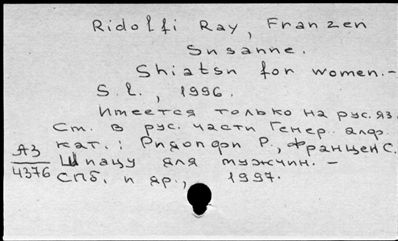 Ridolfi Ray, Franzen
Susanne.
Shiatsu for women.-
S.l., 1996.
Имеется только на рус.яз.
См. в рус. части Генер. алф.
кат.: Ридолфи Р., Францен С.
АЗ Шиацу для мужчин. -
4376 СПб. и др., 1997.